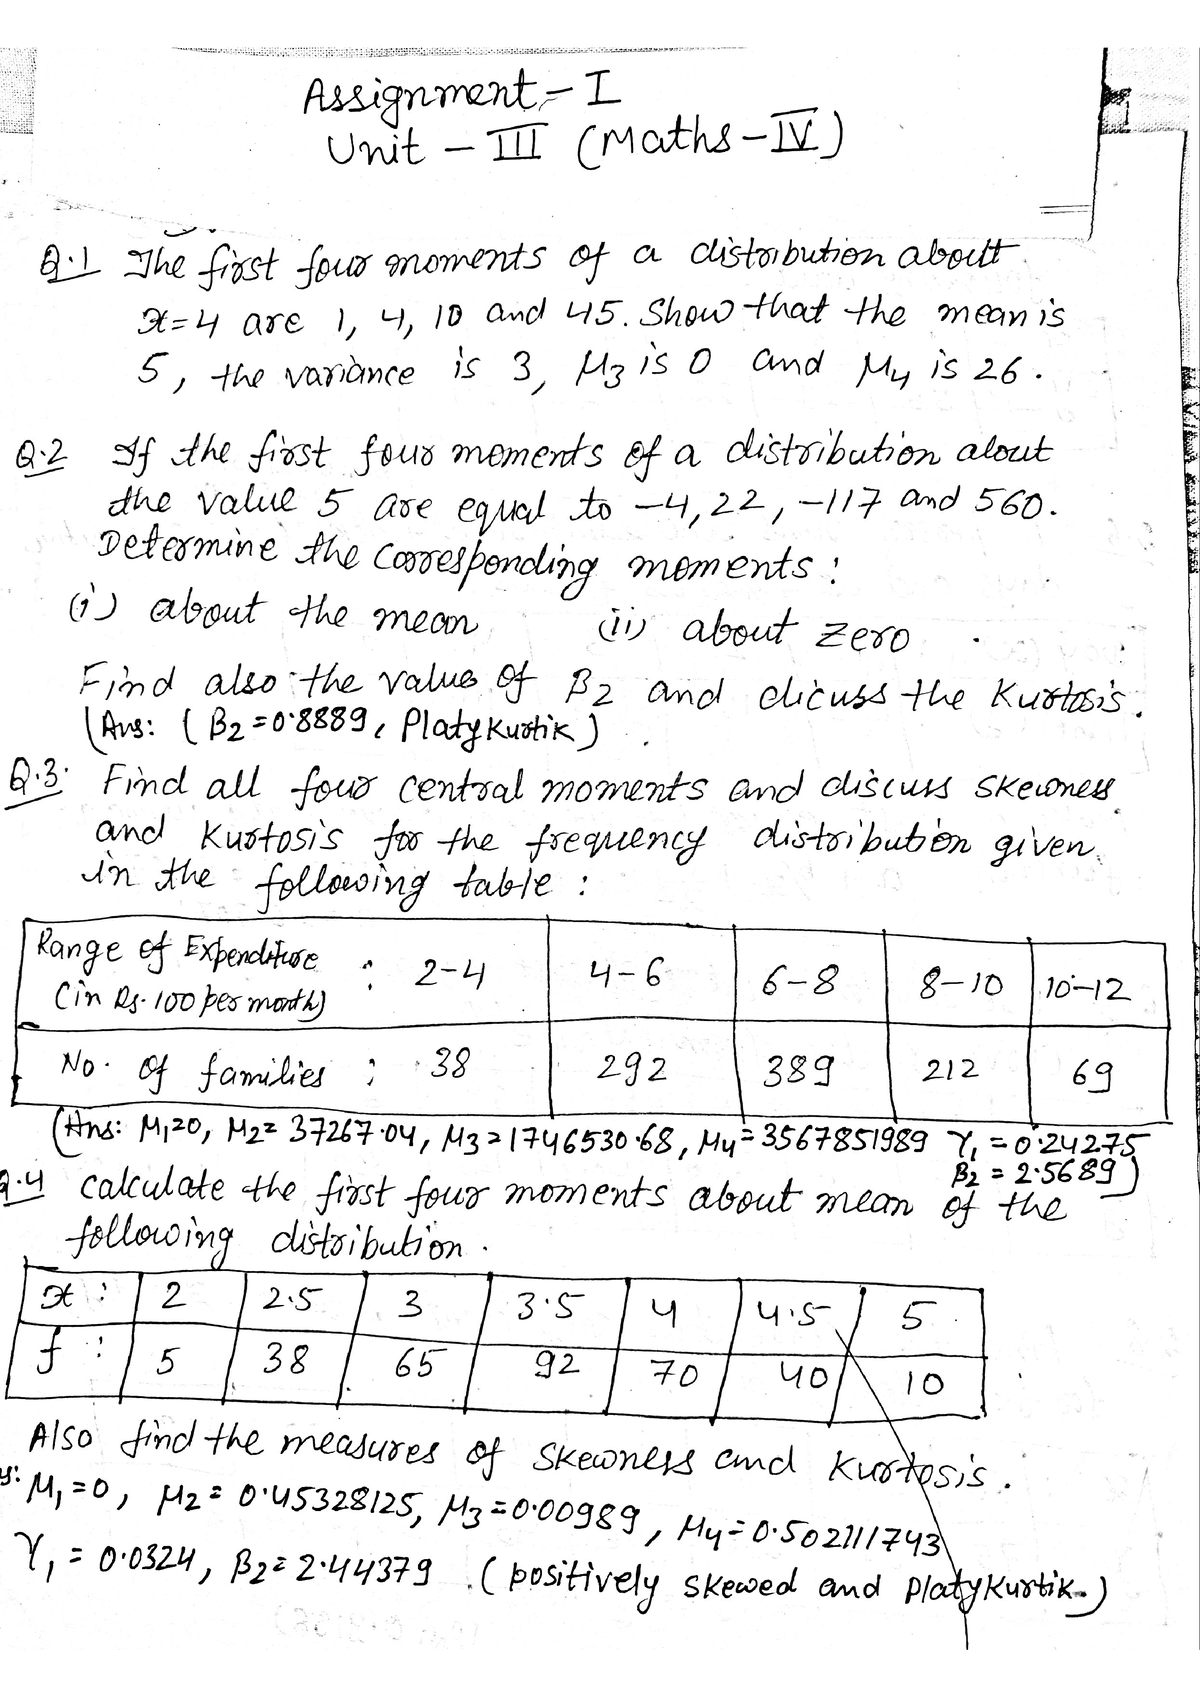 Assignment - I
Unit - III (Maths - IV)
Q.1 The first four moments of a distribution about
x=4 are 1, 4, 10 and 45. Show that the mean is
5, the variance is 3, μ3 is 0 and μ4 is 26.
Q.2 If the first four moments of a distribution about
the value 5 are equal to -4, 22, -117 and 560.
Determine the corresponding moments:
(i) about the mean (ii) about zero
Find also the value of β2 and dicuss the Kurtosis.
(Ans: (β2 = 0.8889, Platykurtik)
Q.3. Find all four central moments and discuss skewness
and Kurtosis for the frequency distribution given
in the following table:
Range of Expenditure (in Rs. 100 per month) : 2-4 4-6 6-8 8-10 10-12
No. of families : 38 292 389 212 69
(Ans: μ1=0, μ2= 37267.04, μ3=1746530.68, μ4=3567851989 γ1 = 0.24275
β2 = 2.5689)
Q.4 calculate the first four moments about mean of the
following distribution.
x : 2 2.5 3 3.5 4 4.5 5
f : 5 38 65 92 70 40 10
Also find the measures of skewness and Kurtosis.
μ1=0, μ2= 0.45328125, μ3=0.00989, μ4=0.502111743
γ1 = 0.0324, β2= 2.44379. (positively skewed and Platykurtik.)